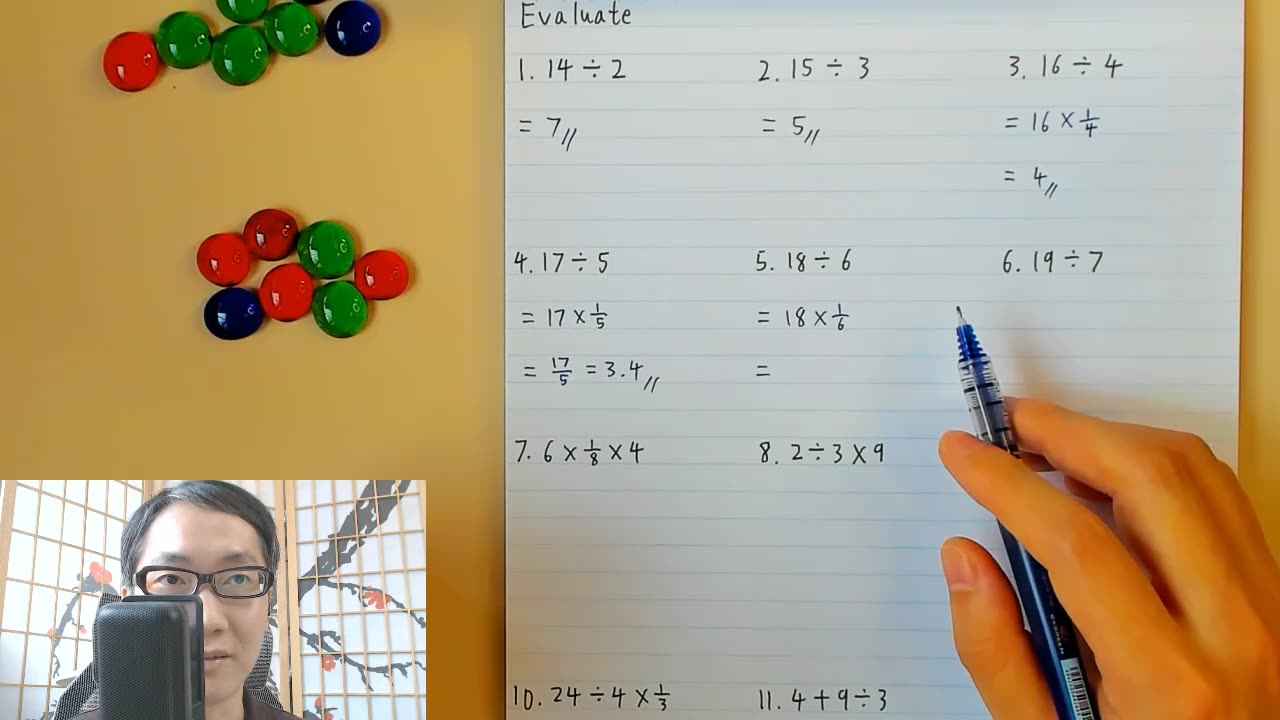 Evaluate
1. 14 ÷ 2
= 7
2. 15 ÷ 3
= 5
3. 16 ÷ 4
= 16 × 1/4
= 4
4. 17 ÷ 5
= 17 × 1/5
= 17/5 = 3.4
5. 18 ÷ 6
= 18 × 1/6
=
6. 19 ÷ 7
7. 6 × 1/8 × 4
8. 2 ÷ 3 × 9
10. 24 ÷ 4 × 1/3
11. 4 + 9 ÷ 3